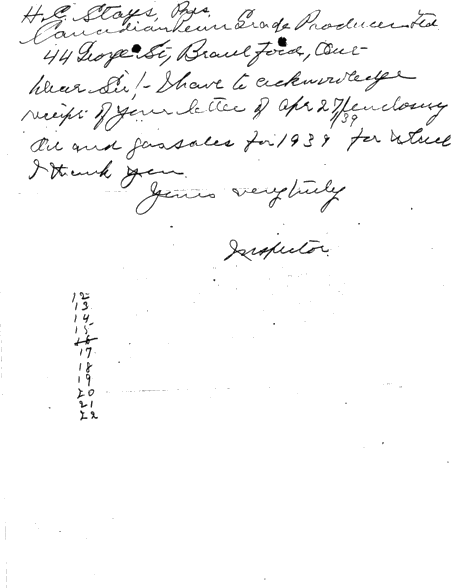 H. C. Stays, Pres
Canadian Penn Grade Producers Ltd
44 George St, Brantford, Ont
Dear Sir:- I have to acknowledge
receipt of your letter of Apr 27/39 enclosing
Oil and gas sales for 1939 for which
I thank you.
Yours very truly
Inspector
12
13
14
15
16
17
18
19
20
21
22